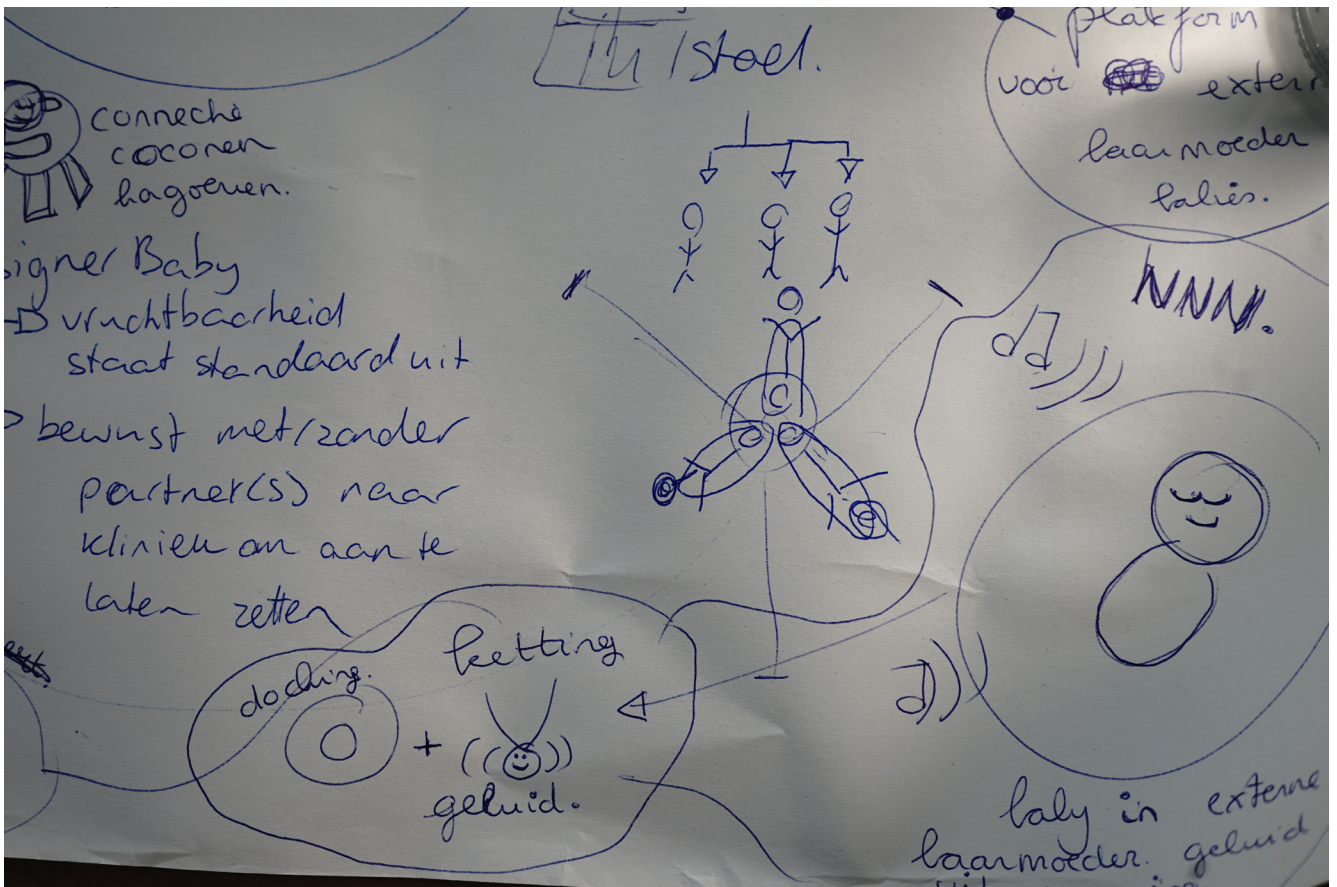 /stoel.
platform
voor extern
baarmoeder
babies.
connectie
coconen
signer Baby
vruchtbaarheid
staat standaard uit
bewust met/zonder
partner(s) naar
kliniek om aan te
laten zetten
NNN.
docking.
ketting
+
geluid.
baby in externe
baarmoeder. geluid